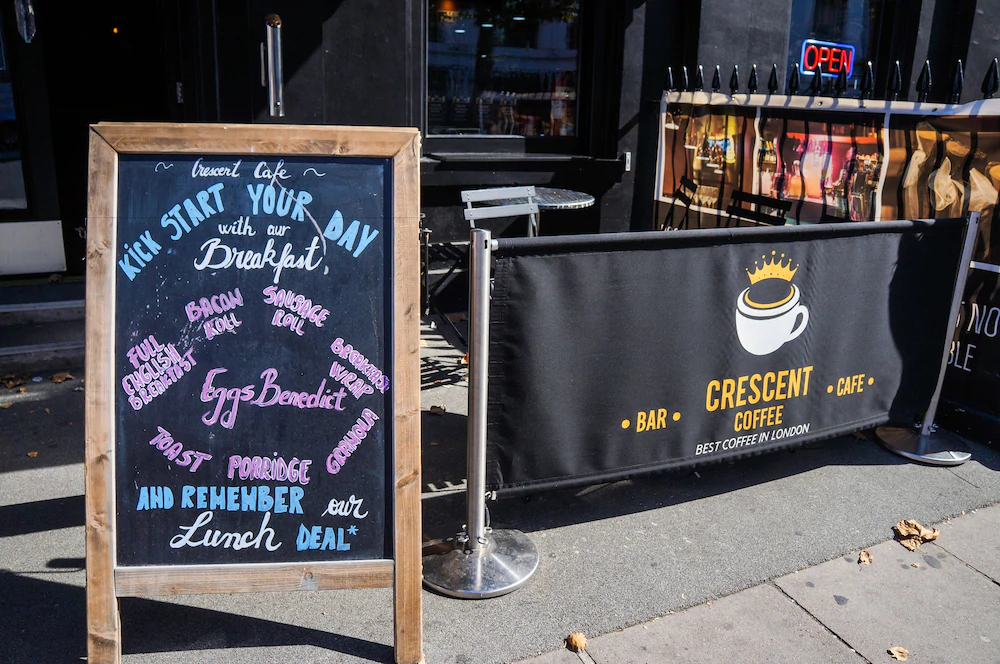 Crescent Cafe
KICK START YOUR DAY
with our
Breakfast,
BACON
ROLL
SAUSAGE
ROLL
FULL
ENGLISH
BREAKFAST
BREAKFAST
WRAP
Eggs Benedict
GRANOLA
TOAST
PORRIDGE
AND REMEMBER our
Lunch DEAL*
OPEN
CRESCENT
COFFEE
• BAR •
• CAFE •
BEST COFFEE IN LONDON
NO